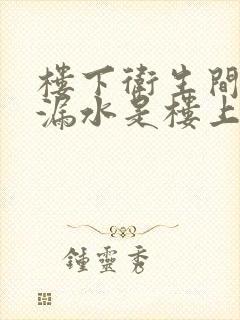 樓下衛生間
漏水是樓上
鍾靈秀